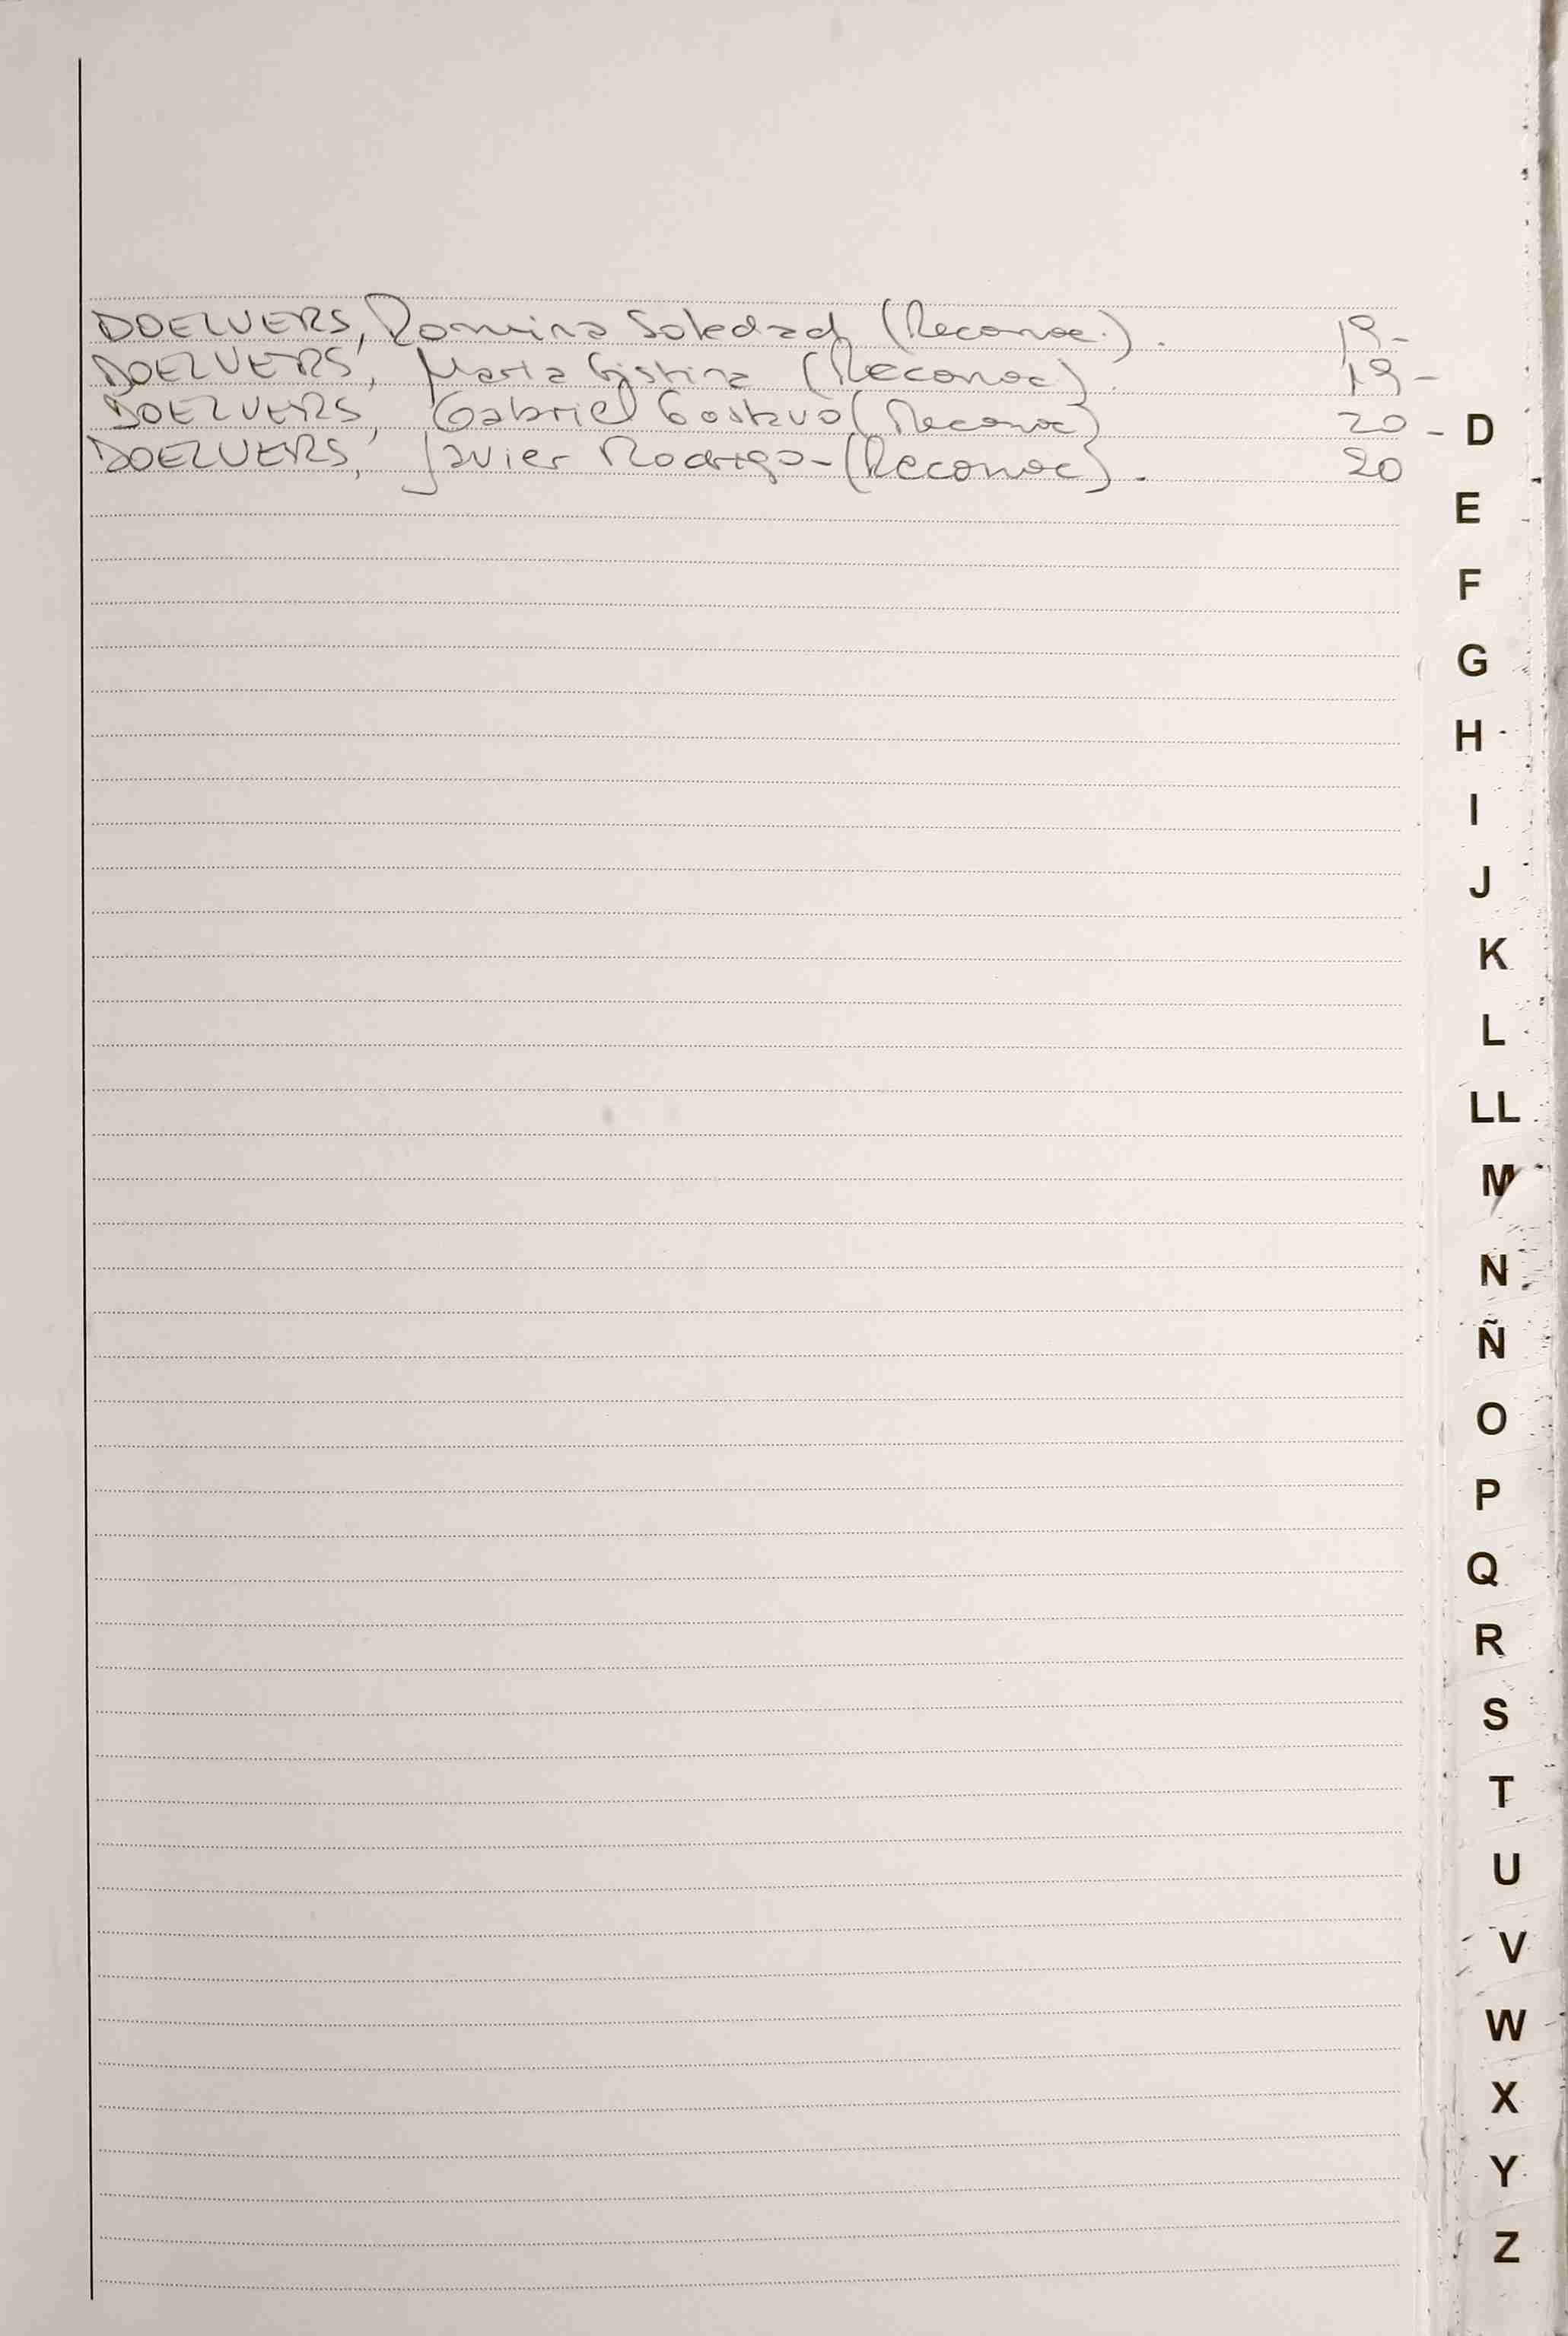 DOELVERS, Romina Soledad (Reconoc.). 19-
DOELVERS, Maria Cristina (Reconoc). 19-
DOELVERS, Gabriel Gustavo (Reconoc) 20-
DOELVERS, Javier Rodrigo-(Reconoc). 20
D
E
F
G
H
I
J
K
L
LL
M
N
Ñ
O
P
Q
R
S
T
U
V
W
X
Y
Z